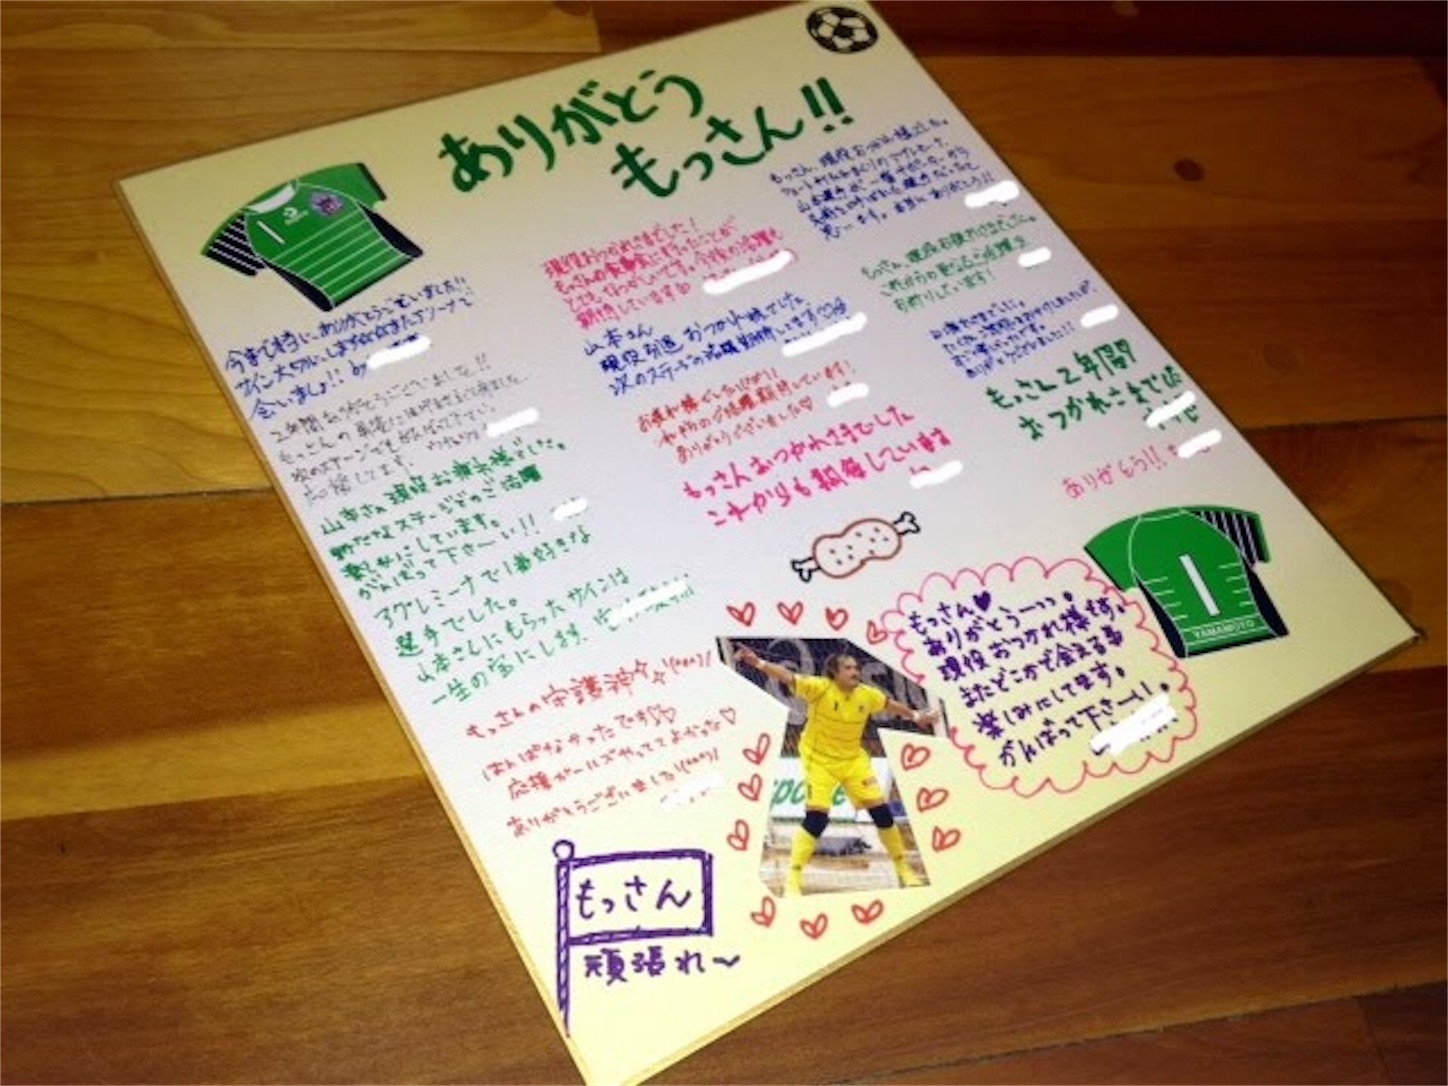 ありがとう
もっさん!!
1
今まで本当にありがとうございました!!
サイン大切にします
会いましょ!! by
2年間ありがとうございました!!
もっさんの
次のステージでもがんばって下さい。
応援してます。
山本さん現役お疲れ様でした。
新たなステージでのご活躍
楽しみにしています。
がんばって下さーい!!
アグレミーナで1番好きな
選手でした。
山本さんにもらったサインは
一生の宝にします。
もっさんの守護神
はんぱなかったです♡♡
応援ガールズやっててよかった♡
ありがとうございました!
もっさん
頑張れ〜
現役おつかれさまでした!
もっさんの
とても なつかしいです。今後の活躍も
期待しています
山本さん
現役引退 おつかれ様でした
次のステージの活躍期待してます
お疲れ様でした!
ありがとうございました
もっさんおつかれさまでした
これからも期待しています
もっさん、現役おつかれ様でした。
もっさん、現役お疲れさまでした。
これからの更なるご活躍を
お祈りしています!
ありがとうございました!!
もっさん2年間
おつかれさまでした
ありがとう!!
1
YAMAMOTO
もっさん♥
ありがとうーっっ。
現役おつかれ様です。
またどこかで会える事
楽しみにしてます。
がんばって下さーい!